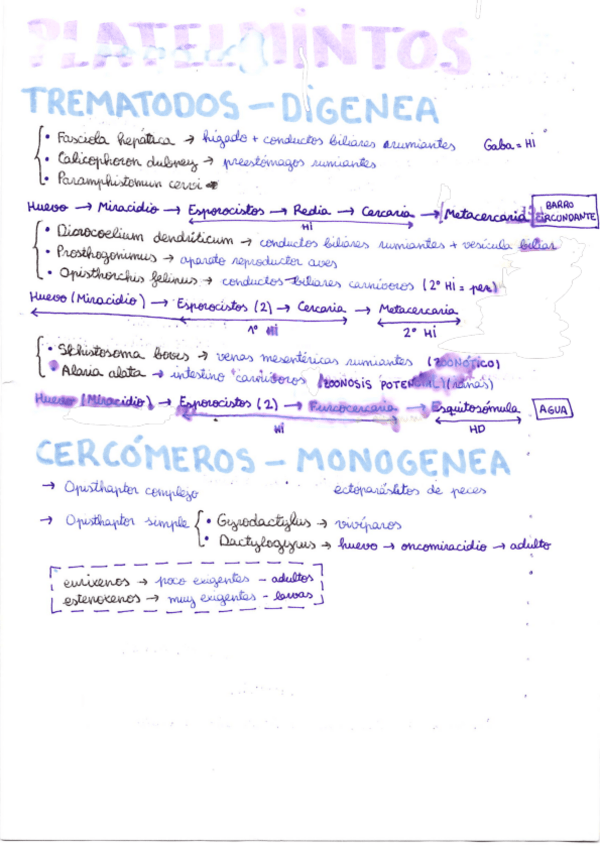 PLATELMINTOS
TREMATODOS - DIGENEA
• Fasciola hepática → hígado + conductos biliares rumiantes Gaba = HI
• Calicophoron daubney → preestómagos rumiantes
• Paramphistomun cervi
Huevo → Miracidio → Esporocistos → Redia → Cercaria → Metacercaria BARRO CIRCUNDANTE
HI
• Dicrocoelium dendríticum → conductos biliares rumiantes + vesícula biliar
• Prosthogonimus → aparato reproductor aves
• Opisthorchus felinus → conductos biliares carnívoros (2º HI = pez)
Huevo (Miracidio) → Esporocistos (2) → Cercaria → Metacercaria
1º HI 2º HI
• Schistosoma bovis → venas mesentéricas rumiantes (ZOONÓTICO)
• Alaria alata → intestino carnívoros (ZOONOSIS POTENCIAL) (ranas)
Huevo (Miracidio) → Esporocistos (2) → Furcocercaria → Esquitosómula AGUA
HI HD
CERCÓMEROS - MONOGENEA
→ Opisthaptor complejo ectoparásitos de peces
→ Opisthaptor simple • Gyrodactylus → vivíparos
• Dactylogyrus → huevo → oncomiracidio → adulto
eurixenos → poco exigentes - adultos
estenoxenos → muy exigentes - larvas